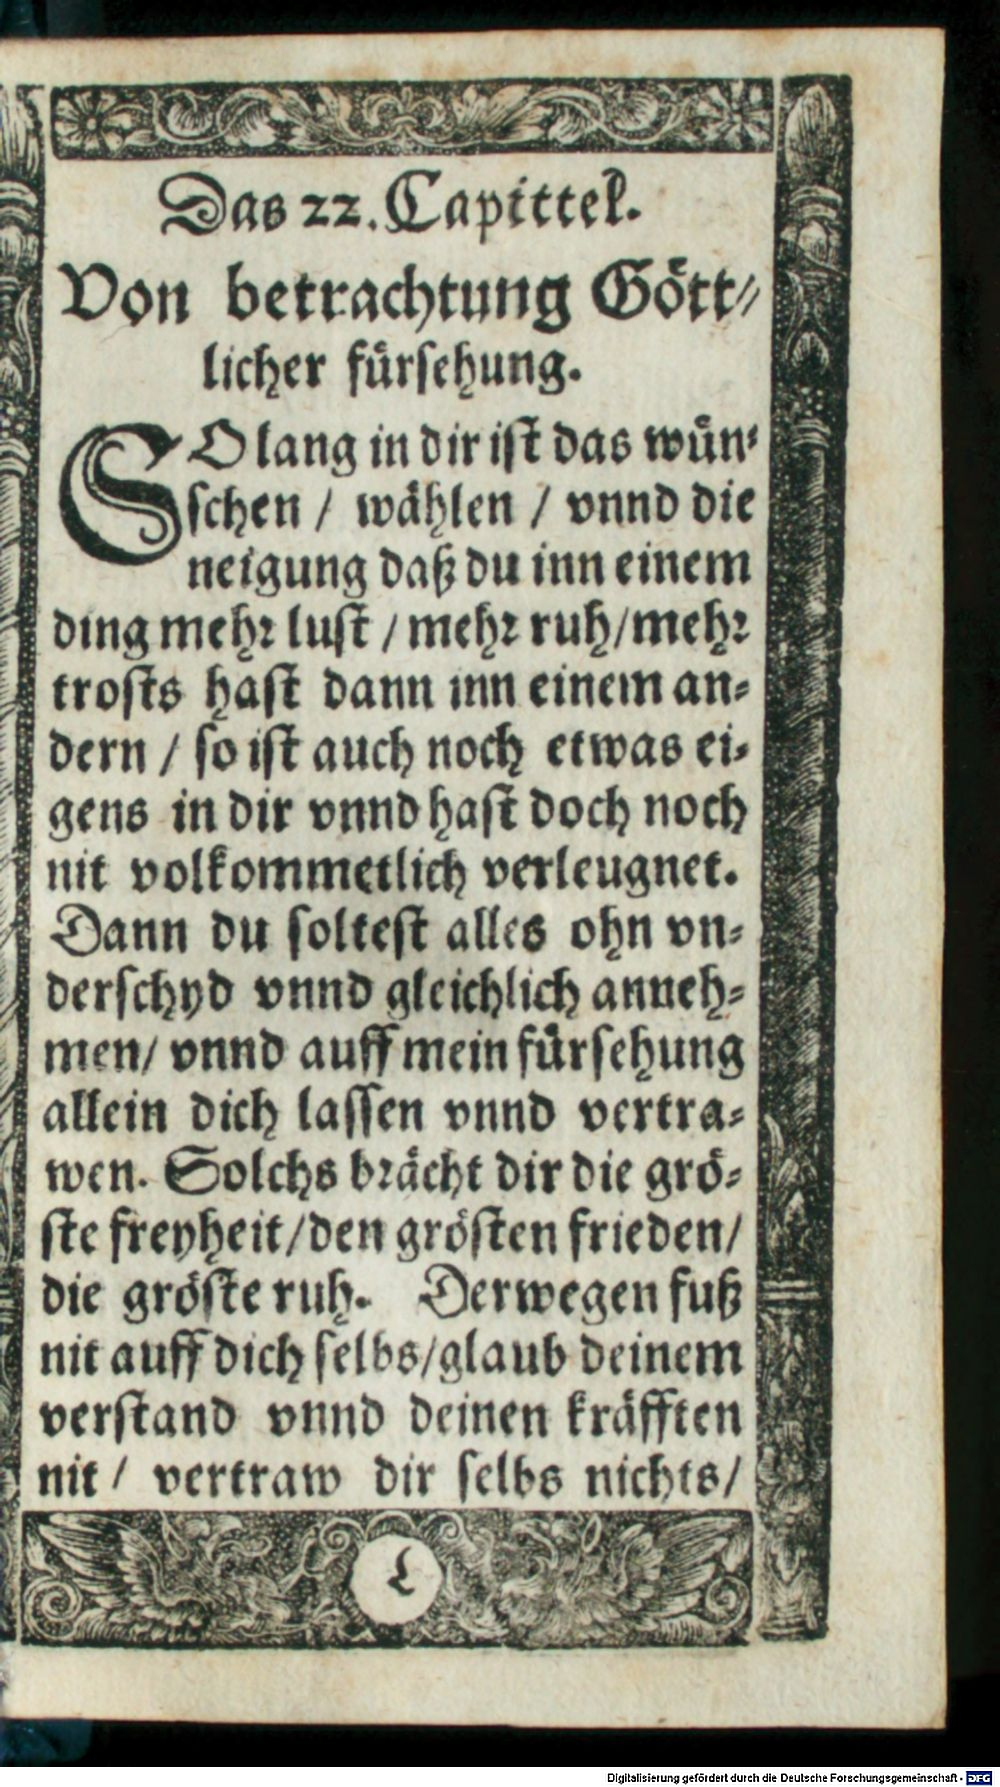 Das 22. Capittel.
Von betrachtung Gött⸗
licher fürsehung.
SO lang in dir ist das wün⸗
schen / wählen / vnnd die
neigung daß du inn einem
ding mehr lust / mehr ruh / mehr
trosts hast dann inn einem an⸗
dern / so ist auch noch etwas ei⸗
gens in dir vnnd hast doch noch
nit volkommetlich verleugnet.
Dann du soltest alles ohn vn⸗
derschyd vnnd gleichlich anneh⸗
men / vnnd auff mein fürsehung
allein dich lassen vnnd vertra⸗
wen. Solchs brächt dir die grö⸗
ste freyheit / den grösten frieden /
die gröste ruh. Derwegen fuß
nit auff dich selbs / glaub deinem
verstand vnnd deinen kräfften
nit / vertraw dir selbs nichts /
L
Digitalisierung gefördert durch die Deutsche Forschungsgemeinschaft - DFG